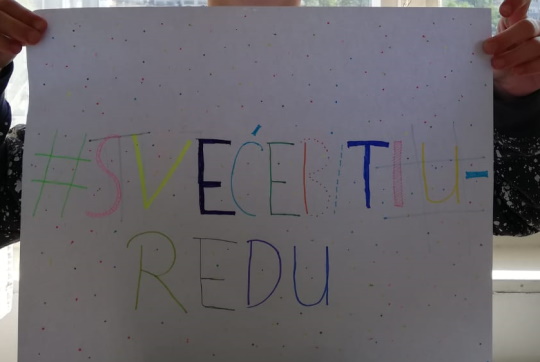 #SVEĆEBITIU-
REDU